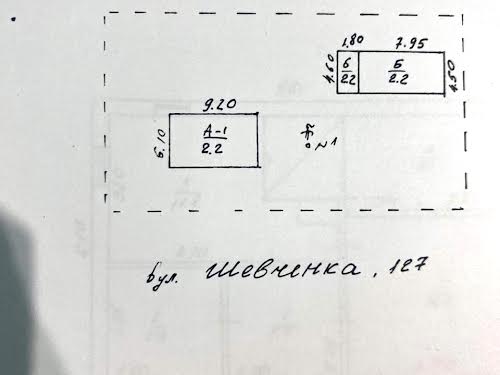 1.80 7.95
4.50 б/2.2 Б/2.2 4.50
9.20
6.10 А-1/2.2
№1
вул. Шевченка, 127